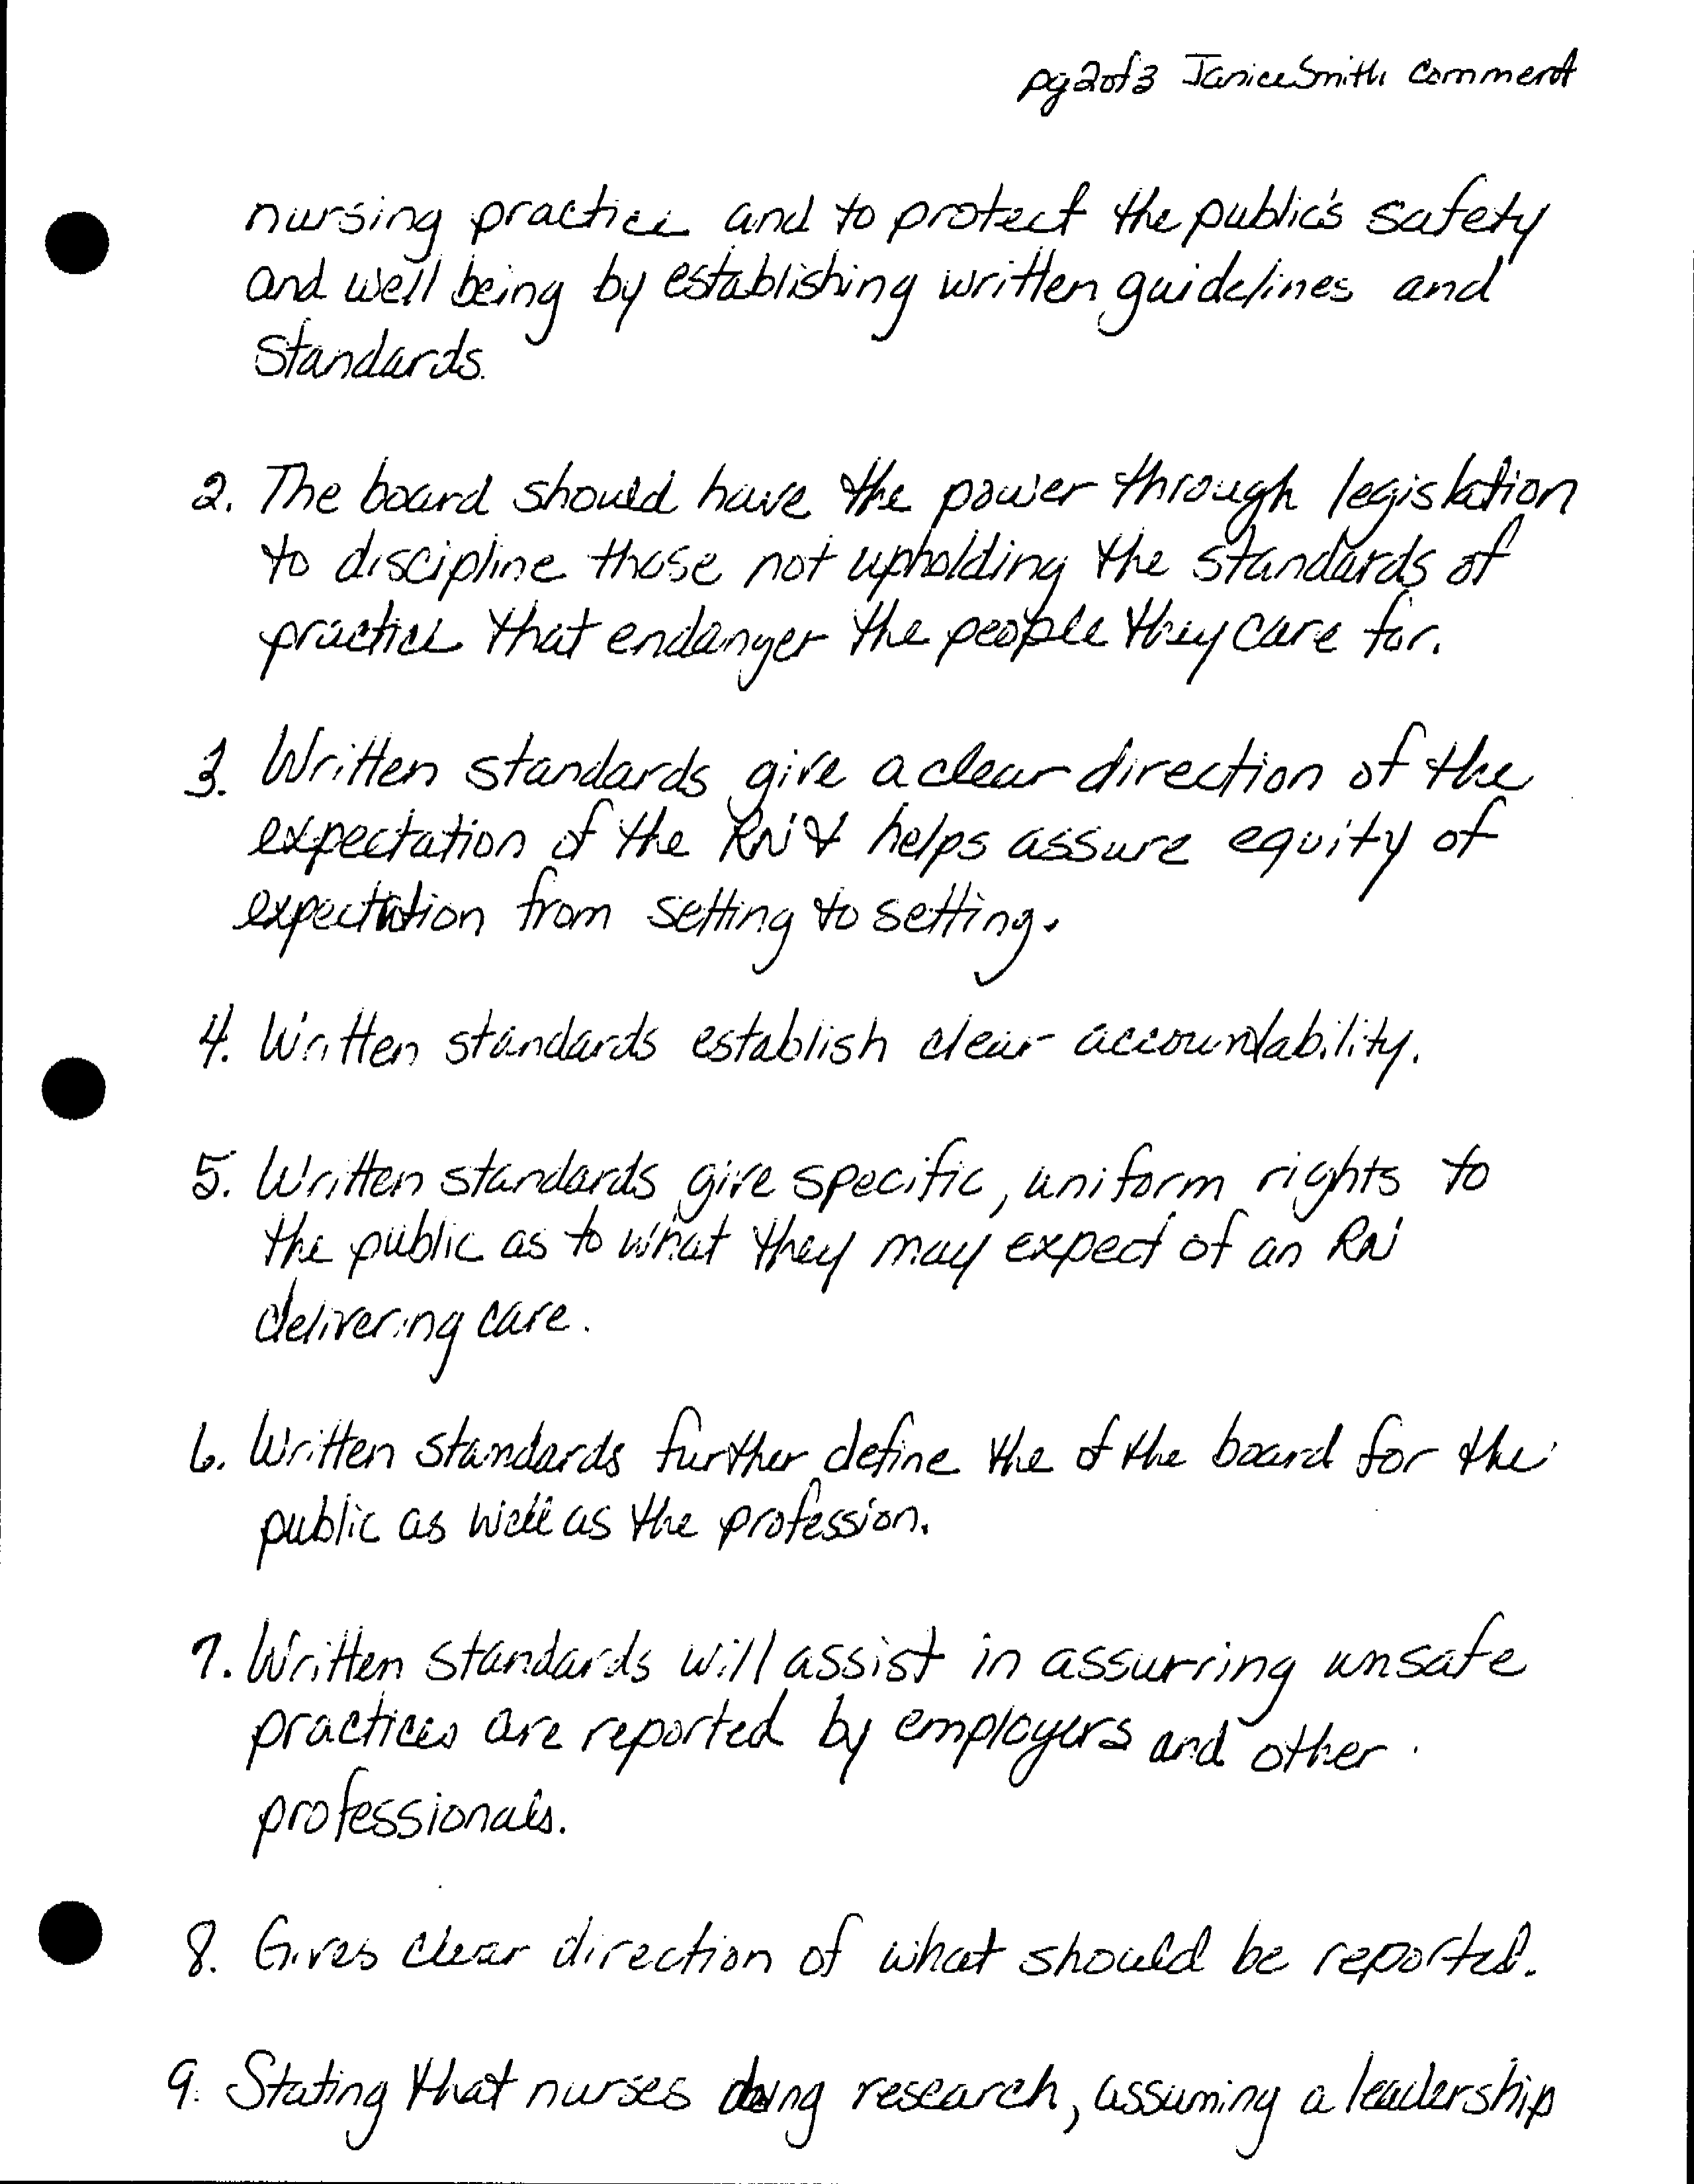 pg 2 of 3 Janice Smith Comment
nursing practice and to protect the public's safety
and well being by establishing written guidelines and
standards.
2. The board should have the power through legislation
to discipline those not upholding the standards of
practice that endanger the people they care for.
3. Written standards give a clear direction of the
expectation of the RN & helps assure equity of
expectation from setting to setting.
4. Written standards establish clear accountability.
5. Written standards give specific, uniform rights to
the public as to what they may expect of an RN
delivering care.
6. Written standards further define the of the board for the
public as well as the profession.
7. Written standards will assist in assurring unsafe
practices are reported by employers and other
professionals.
8. Gives clear direction of what should be reported.
9. Stating that nurses doing research, assuming a leadership